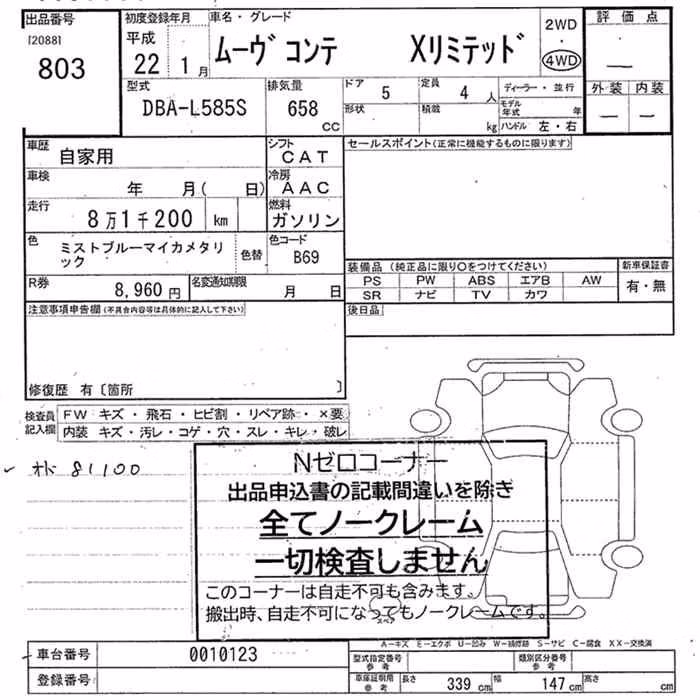 出品番号 初度登録年月 車名・グレード 2WD 評価点
[2088] 平成
803 22 1月 ムーヴコンテ Xリミテッド ・ 4WD —
型式 排気量 ドア 5 定員 4人 ディーラー・並行 外装 内装
DBA-L585S 658 cc 形状 積載 kg モデル年式 年 — —
ハンドル 左・右
車歴 自家用 シフト CAT セールスポイント(正常に機能するものに限ります)
車検 年 月( 日) 冷房 AAC
走行 8万1千200 km 燃料 ガソリン
色 ミストブルーマイカメタリ 色替 色コード B69
ック
装備品 (純正品に限り○をつけてください) 新車保証書
PS PW ABS エアB AW 有・無
SR ナビ TV カワ
R券 8,960円 名変通知期限 月 日
後日品
注意事項申告欄(不具合内容等は具体的に記入して下さい)
修復歴 有〔箇所 〕
検査員 FW キズ・飛石・ヒビ割・リペア跡・×要
記入欄 内装 キズ・汚レ・コゲ・穴・スレ・キレ・破レ
81100
Nゼロコーナー
出品申込書の記載間違いを除き
全てノークレーム
一切検査しません
このコーナーは自走不可も含みます。
搬出時、自走不可になってもノークレームです。
スペア
A−キズ E−エクボ U−凹み W−補修跡 S−サビ C−腐食 XX−交換済
車台番号 0010123 型式指定番号 参考 類別区分番号 参考
登録番号 車庫証明用 参考 長さ 339cm 幅 147cm 高さ cm